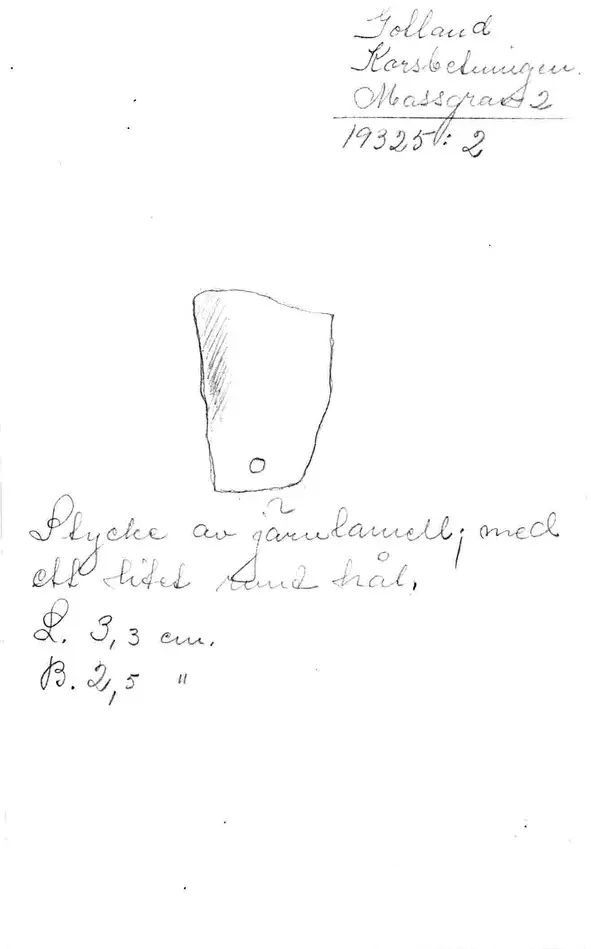 Gotland
Korsbetningen.
Massgrav 2
19325:2
Stycke av järnlamell; med
ett litet runt hål.
L. 3,3 cm.
B. 2,5 "